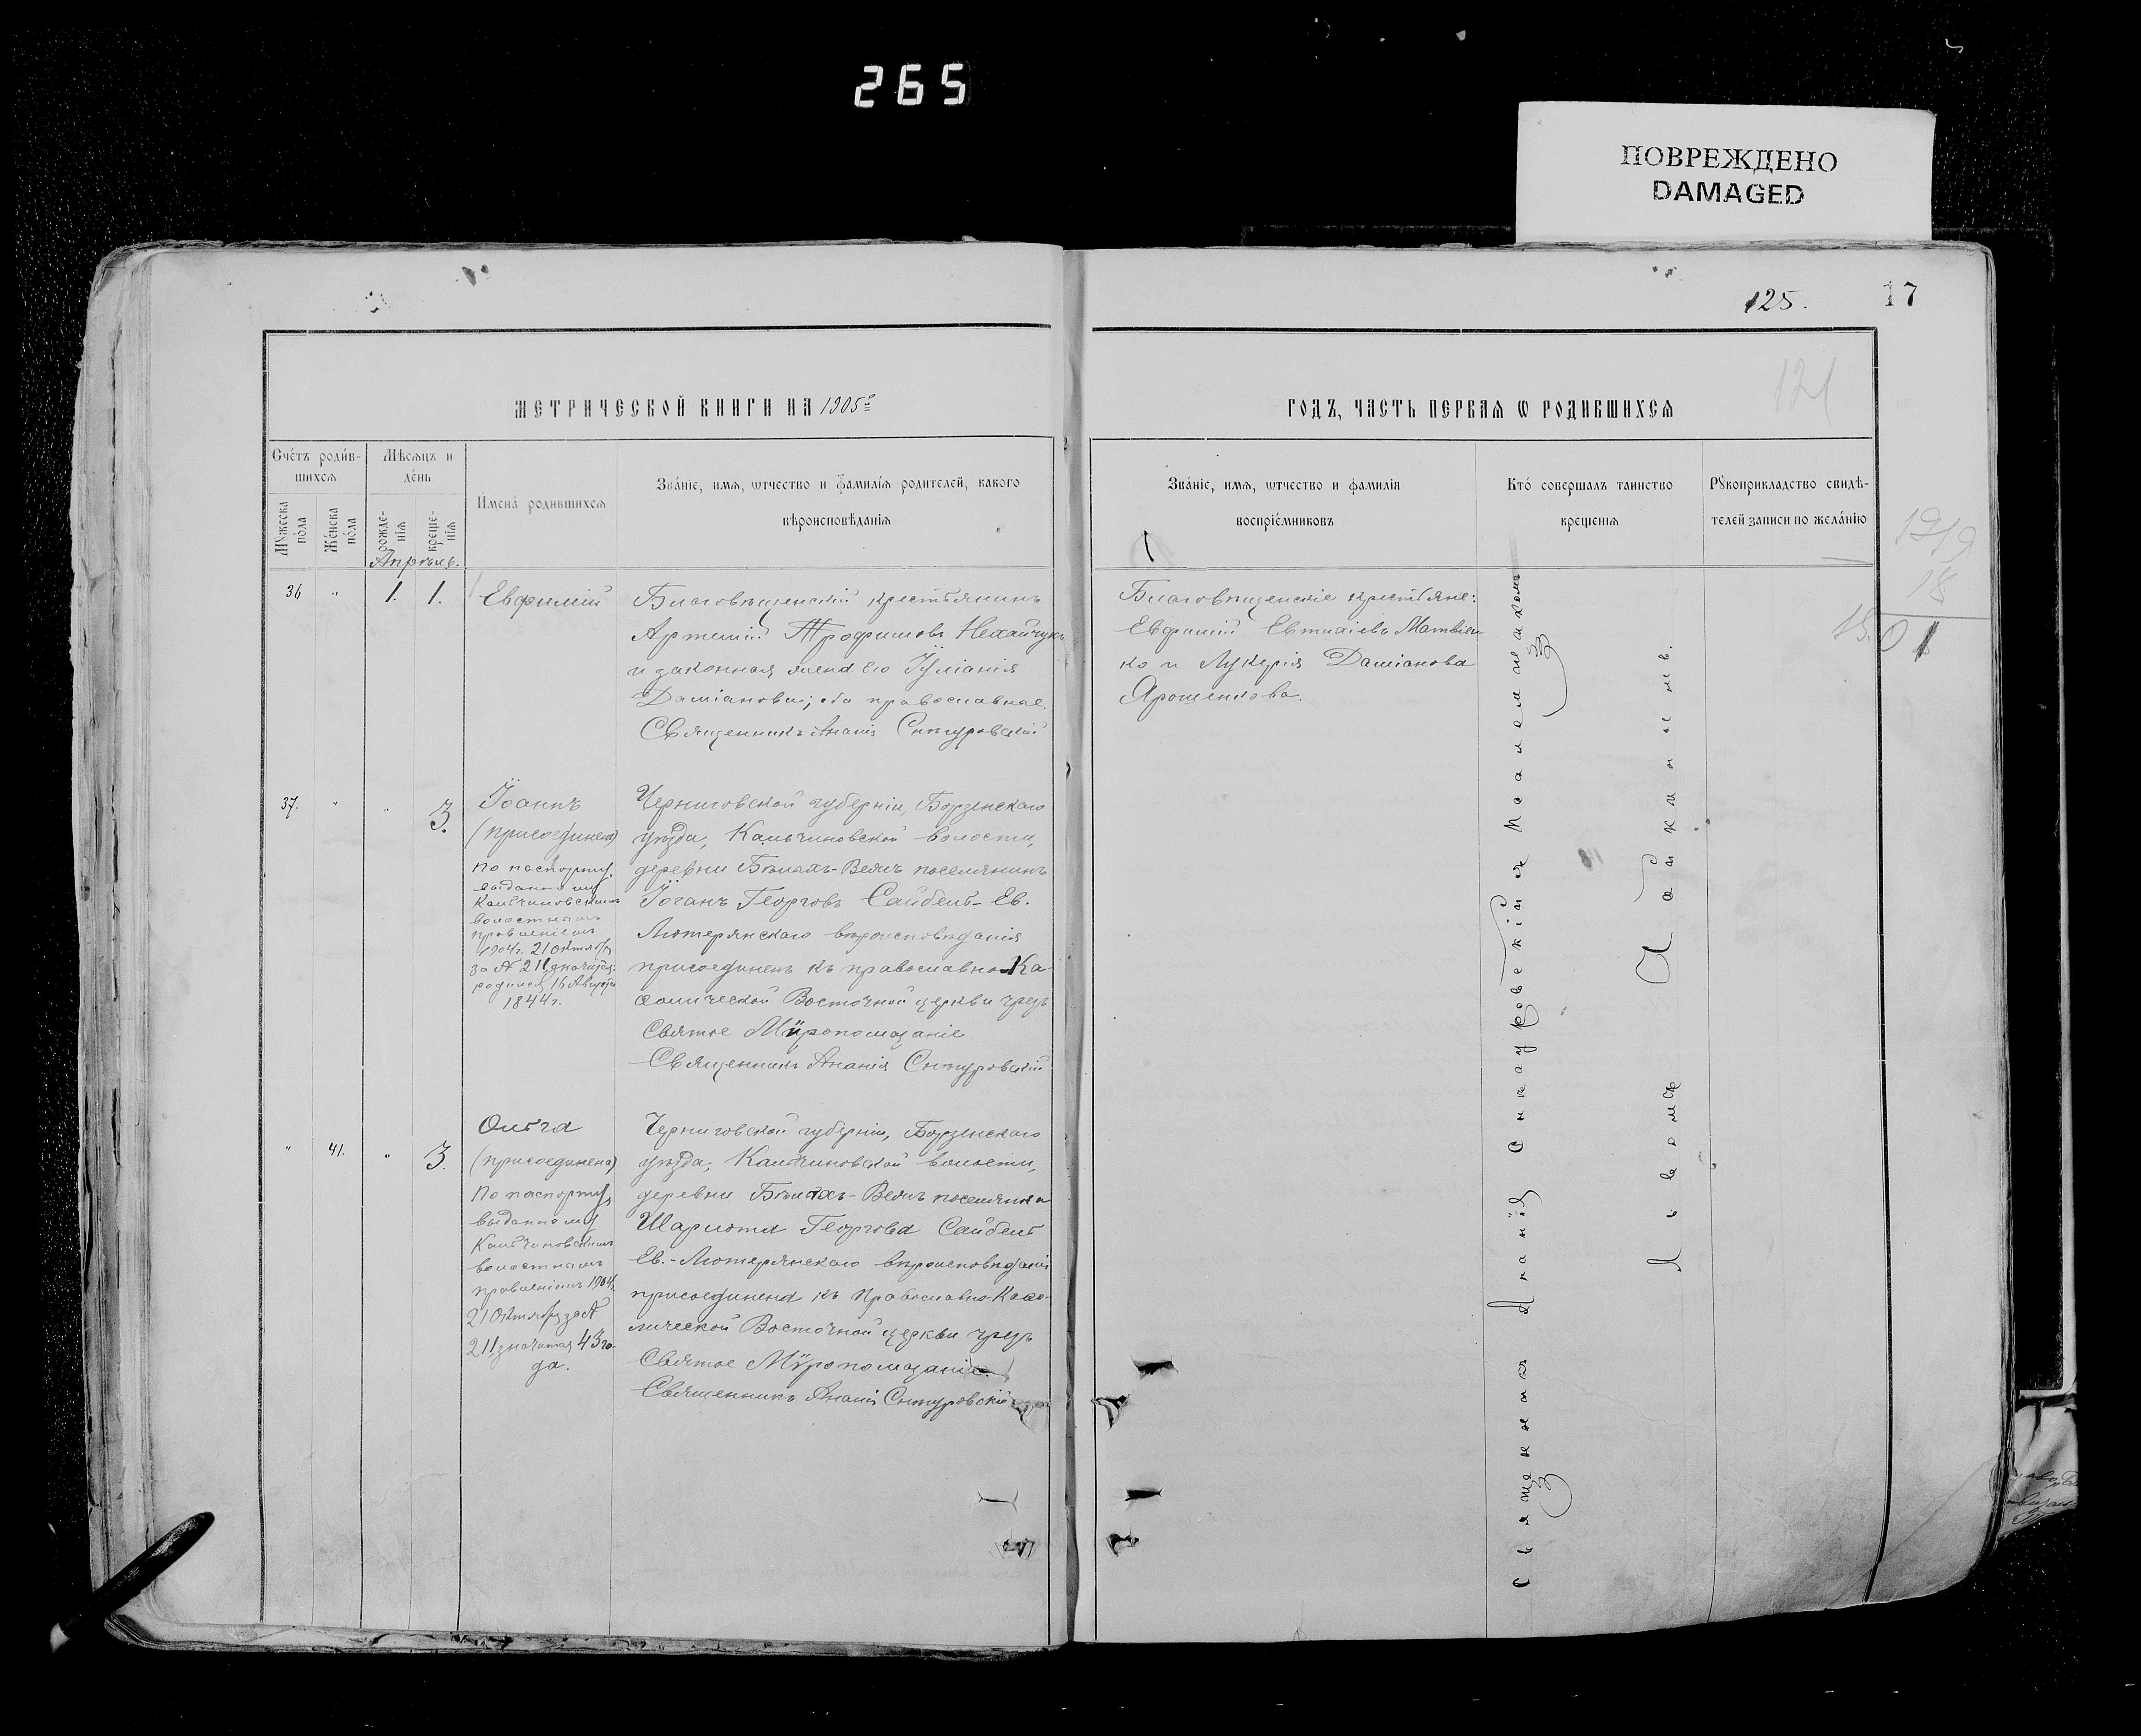 265
ПОВРЕЖДЕНО
DAMAGED
125.
17
121
МЕТРИЧЕСКОЙ КНИГИ НА 1905й
ГОДЪ, ЧАСТЬ ПЕРВАѦ Ѡ РОДИВШИХСѦ
Сче́тъ роди́в-
шихсѧ
Мѣ́сѧцъ и
де́нь
Мꙋ́жеска
по́ла
Же́нска
по́ла
рожде-
нїѧ
креще-
нїѧ
Имена́ родившихсѧ
Зва́нїе, имѧ, ѿчество и фамилїѧ родителей, какого
вѣроисповѣданїѧ
Зва́нїе, имѧ, ѿчество и фамилїѧ
воспрїе́мниковъ
Кто́ совершалъ таинство
крещенїѧ
Рꙋкоприкладство свидѣ-
телей записи по жела́нїю
Апрѣль.
1919
18
36 " 1. 1.
Евфимій
Благовѣщенскій крестьянинъ
Артемій Трофимовъ Нехайчукъ
и законная жена его Іуліанія
Даміанова; оба православнаго.
Священникъ Ананія Снтуровскій
Благовѣщенскіе крестьяне:
Евфимій Евтихіевъ Матвіен-
ко и Лукерія Даміанова
Ярошенкова.
37. " " 3.
Іоаннъ
(присоединенъ)
по паспорту,
выданному
Кальчиновскимъ
волостнымъ
правленіемъ
1904г. 21 октября
за № 211, значится:
родился 16 Августа
1844 г.
Черниговской губерніи, Борзенскаго
уѣзда, Кальчиновской волости,
деревни Бѣлыхъ-Вежъ поселянинъ
Іоганъ Георговъ Сайбель - Ев.
Лютерянскаго вѣроисповѣданія
присоединенъ къ православно-Ка-
ѳолической Восточной церкви чрезъ
Святое Мѵропомазаніе
Священникъ Ананія Снтуровскій
" 41. " 3.
Ольга
(присоединена)
По паспорту,
выданному
Кальчиновскимъ
волостнымъ
правленіемъ 1904г.
21 Октября за №
211, значится 43 го-
да.
Черниговской губерніи, Борзенскаго
уѣзда, Кальчиновской волости,
деревни Бѣлыхъ-Вежъ поселянка
Шарлота Георгова Сайбель
Ев.-Лютерянскаго вѣроисповѣданія
присоединена къ Православно-Каѳо-
лической Восточной церкви чрезъ
Святое Мѵропомазаніе.
Священникъ Ананія Снтуровскій
Священникъ Ананія
съ псаломщикомъ
Львомъ